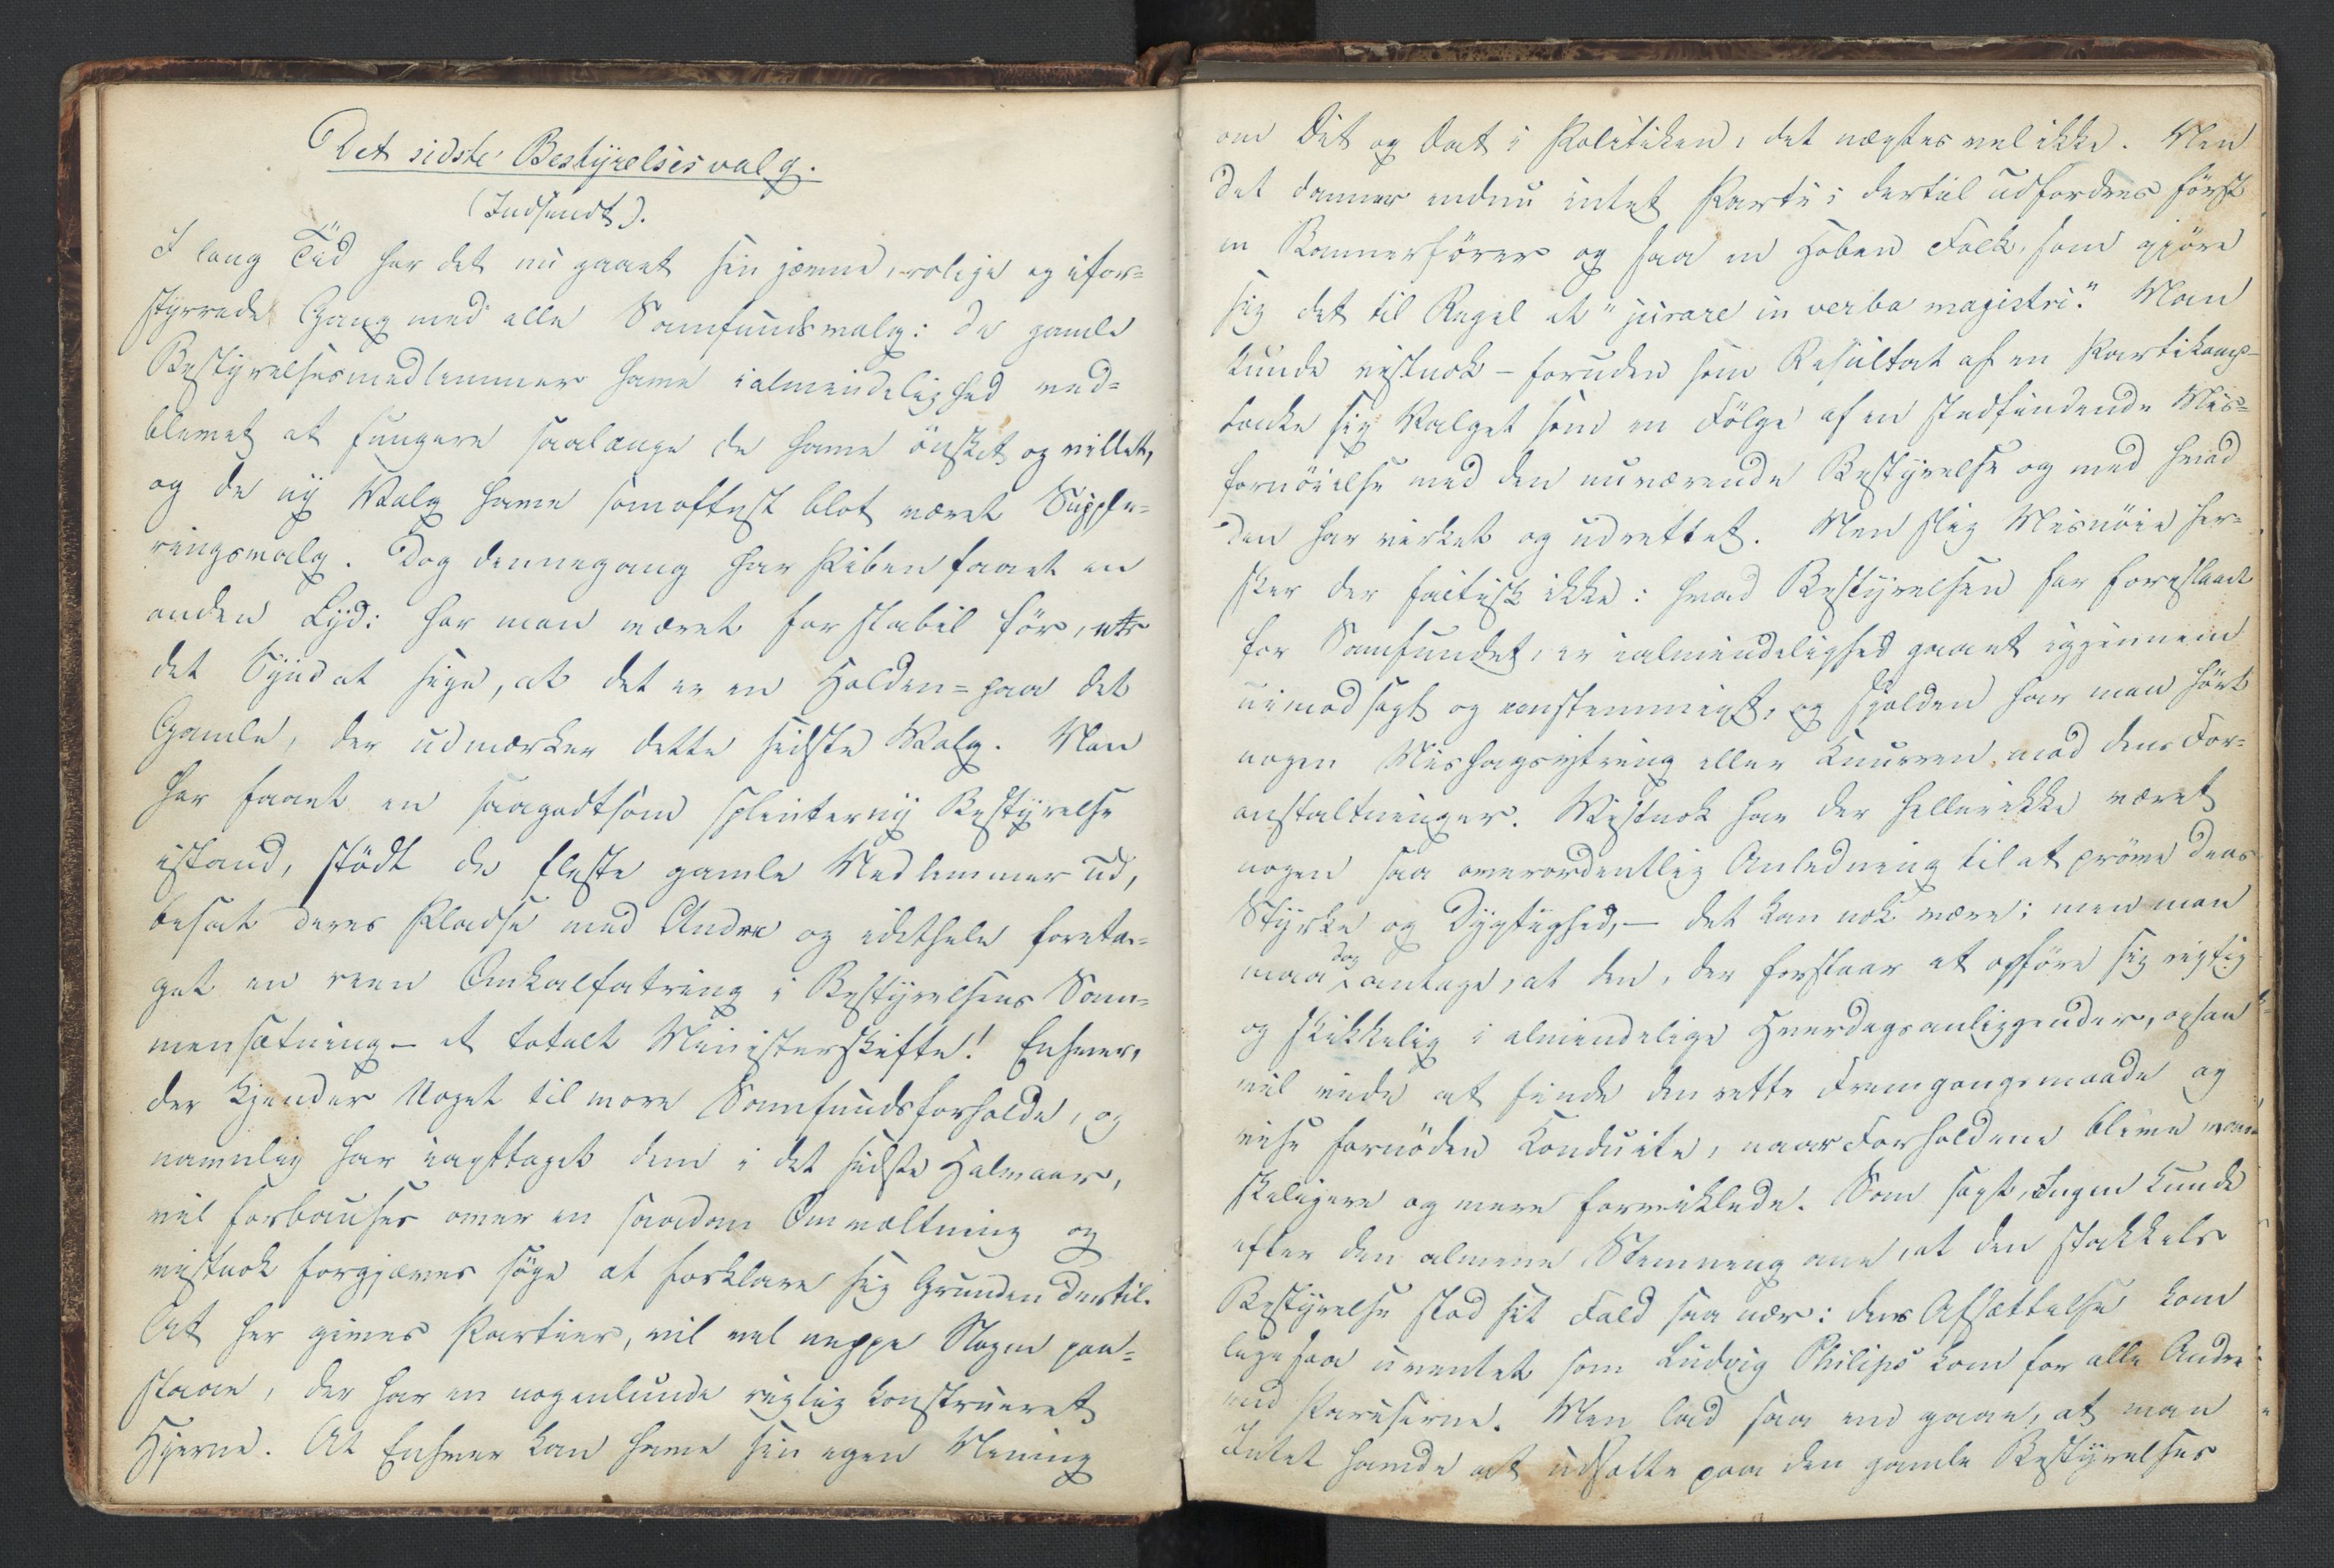 Det sidste Bestyrelsesvalg.
(Indsendt).
I lang Tid har det nu gaaet sin jævne, rolige og ufor-
styrrede Gang med alle Samfundsvalg: de gamle
Bestyrelsesmedlemmer have ialmindelighed ved-
blevet at fungere saalænge de have ønsket og villet,
og de ny Valg have somoftest blot været Supple-
ringsvalg. Dog dennegang har Piben faaet en
anden Lyd: har man været for stabil før, er
det Synd at sige, at det er en Holden-paa det
Gamle, der udmærker dette sidste Valg. Man
har faaet en saagodtsom splinterny Bestyrelse
istand, stødt de fleste gamle Medlemmer ud,
besat deres Pladse med Andre og idethele foreta-
get en reen Omkalfatring i Bestyrelsens Sam-
mensætning – et totalt Ministerskifte! Enhver,
der kjender Noget til vore Samfundsforholde, og
navnlig har iagttaget dem i det sidste Halvaar,
vil forbauses over en saadan Omvæltning og
vistnok forgjæves søge at forklare sig Grunden dertil.
At her gives Partier, vil vel neppe Nogen paa-
staae, der har en nogenlunde rigtig konstrueret
Hjerne. At Enhver kan have sin egen Mening
om Dit og Dat i Politiken, det nægtes vel ikke. Men
det danner endnu intet Parti; dertil udfordres først
en Bannerfører og saa en Hoben Folk, som gjøre
sig det til Regel at "jurare in verba magistri." Man
kunde vistnok – foruden som Resultat af en Partikamp –
tænke sig Valget som en Følge af en stedfindende Mis-
fornøielse med den nuværende Bestyrelse og med hvad
den har virket og udrettet. Men slig Misnøie her-
sker der factisk ikke: hvad Bestyrelsen har foreslaaet
for Samfundet, er ialmindelighed gaaet igjennem
uimodsagt og eenstemmigt, og sjelden har man hørt
nogen Mishagsytring eller Knurren mod dens For-
anstaltninger. Vistnok har der hellerikke været
nogen saa overordentlig Anledning til at prøve dens
Styrke og Dygtighed, – det kan nok være; men man
maa dog antage, at den, der forstaar at opføre sig rigtig
og skikkelig i almindelige Hverdagsanliggender, ogsaa
vil vide at finde den rette Fremgangsmaade og
vise fornøden Konduite, naar Forholdene blive van-
skeligere og mere forviklede. Som sagt, Ingen kunde
efter den almene Stemning ane, at den stakkels
Bestyrelse stod sit Fald saa nær: dens Afsættelse kom
ligesaa uventet som Ludvig Philips kom for alle Andre
end Pariserne. Men lad saa end gaae, at man
Intet havde at udsætte paa den gamle Bestyrelses